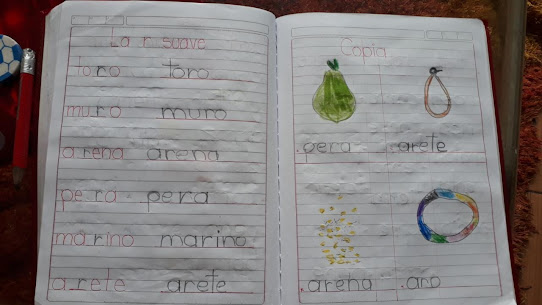 La r suave
toro toro
muro muro
arena arena
pera pera
marino marino
arete arete
Copia
.pera .arete
.arena .aro